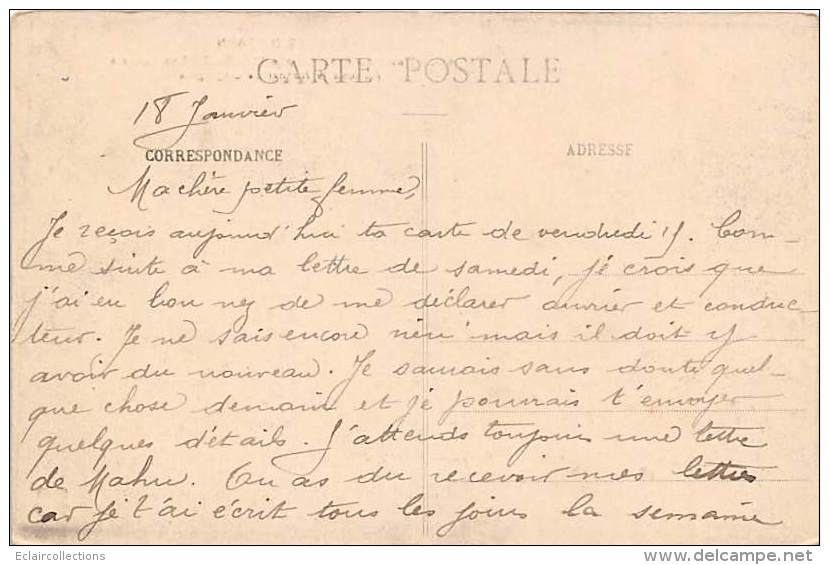 CARTE POSTALE
18 Janvier
CORRESPONDANCE
ADRESSE
Ma chère petite femme,
Je reçois aujourd'hui ta carte de vendredi 15. Com-
me suite à ma lettre de samedi, je crois que
j'ai eu bon nez de me déclarer ouvrier et conduc-
teur. Je ne sais encore rien mais il doit y
avoir du nouveau. Je saurais sans doute quel-
que chose demain et je pourrais t'envoyer
quelques détails. J'attends toujours une lettre
de Mahu. Tu as du recevoir mes lettres
car je t'ai écrit tous les jours la semaine
Eclaircollections
delcampe.net